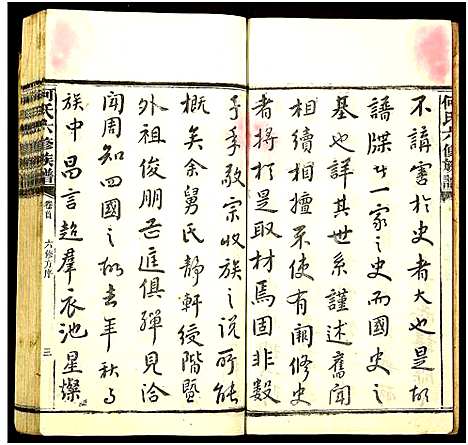 何氏六修族譜
不講害於史者大也是故
譜牒廿一家之史而國史之
基也詳其世系謹述舊聞
相續相擅不使有闕修史
者將於是取材焉固非數
子季敬宗收族之說所能
概矣余舅氏靜軒綬階暨
外祖俊朋匹匡俱殫見洽
聞周知四國之故去年秋與
族中昌言超群衣池星燦
何氏六修族譜
卷首
六修方序
三